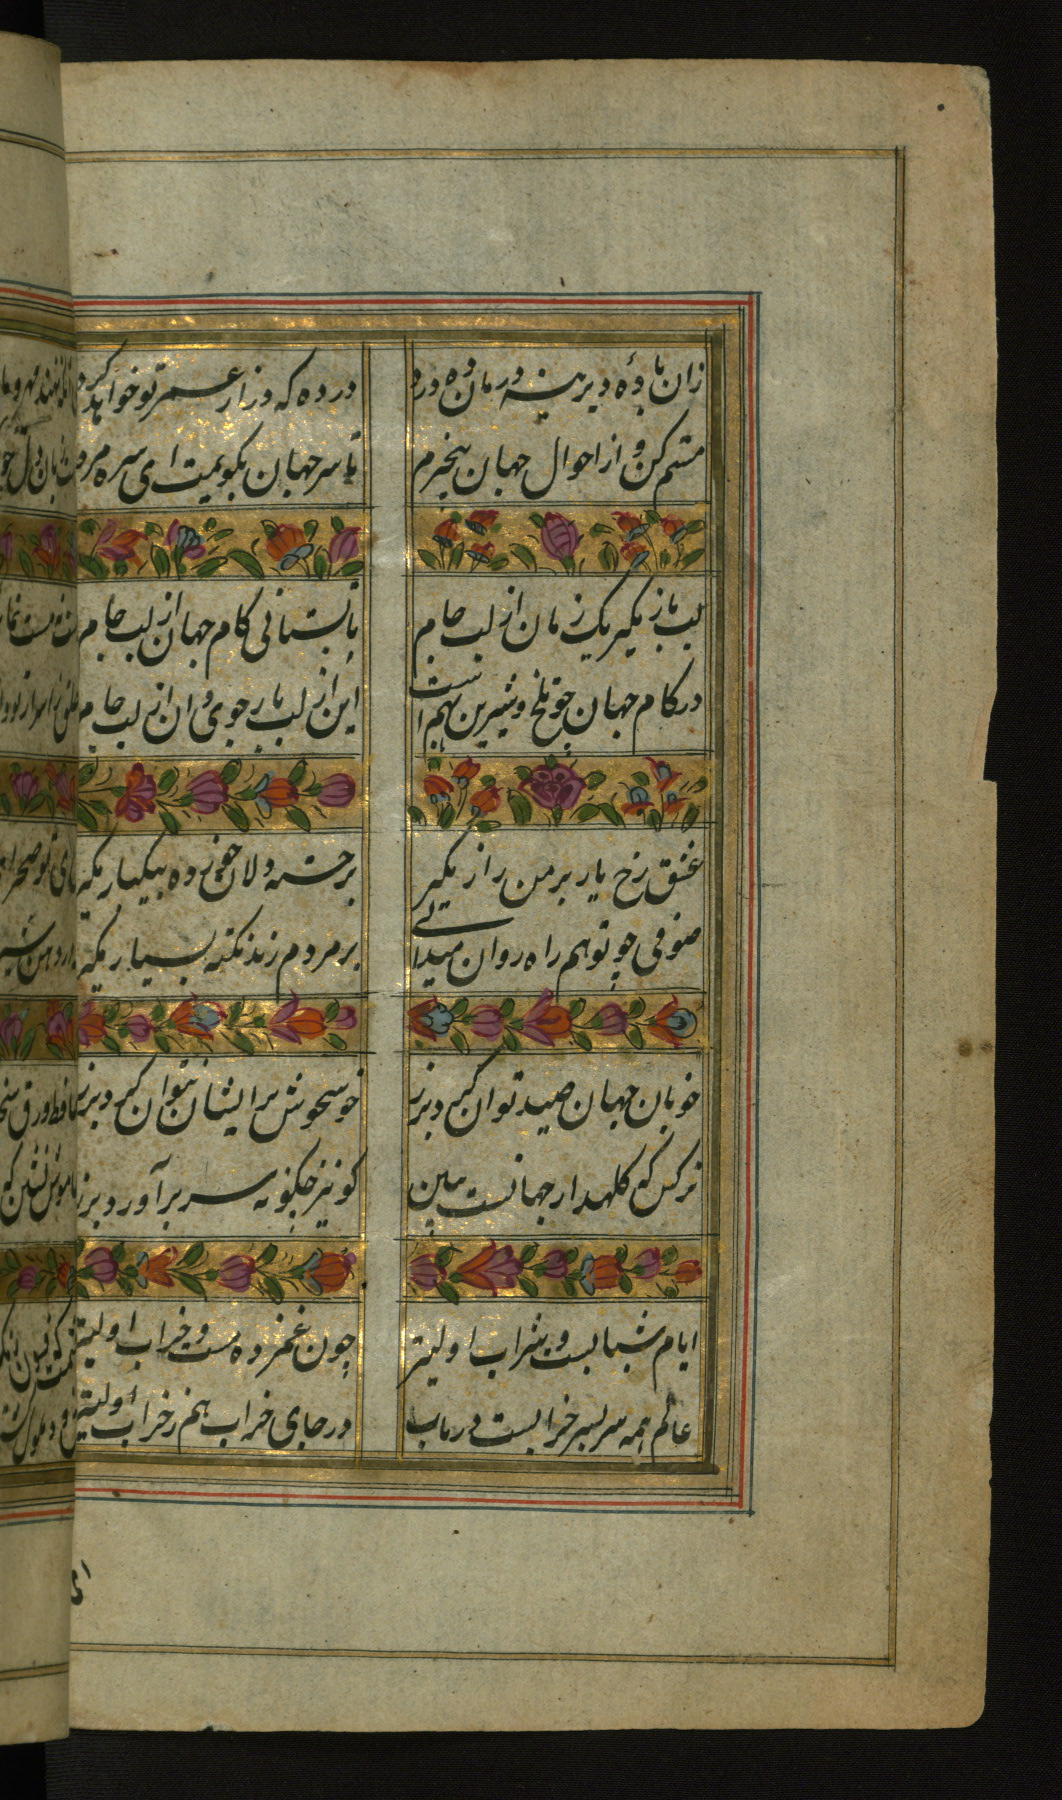 زان بادهٔ دیرینه و درمان ده درد در ده که دراز عمر تو خواهد کرد
مستم کن و از احوال جهان بیخبرم تا سر جهان بگویمت ای سره مرد
لب باز مگیر یک زمان از لب جام تا بستانی کام جهان از لب جام
در کام جهان چو تلخ و شیرین بهم است این از لب یار جوی و ان از لب جام
عشق رخ یار بر من زار مگیر بر خسته دلان خورده بیکبار مگیر
صوفی چو تو هم راه روان میدانی بر مردم رند نکته بسیار مگیر
خوبان جهان صید توان کرد بزر خوش بر ایشان بتوان کرد بزر
نرگس که کلهدار جهانست ببین کو نیز چگونه سر برآورد بزر
ایام شبابست و شراب اولیتر چون غمزده مست و خراب اولیتر
عالم همه سر بسر خرابست دریاب در جای خراب هم خراب اولیتر